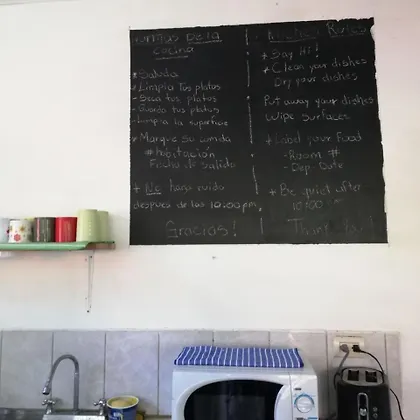 Normas De la
cocina
* Saluda
* Limpia Tus platos
- Seca tus platos
- Guarda tus platos
- Limpia la superficie
* Marque Su comida
# habitación
Fecha de Salida
* No haga ruido
despues de las 10:00 pm.
Gracias!
Kitchen Rules
* Say Hi!
* Clean your dishes
Dry your dishes
Put away your dishes
Wipe surfaces
* Label your Food
- Room #
- Dep. Date
* Be quiet after
10:00 pm
Thank You!